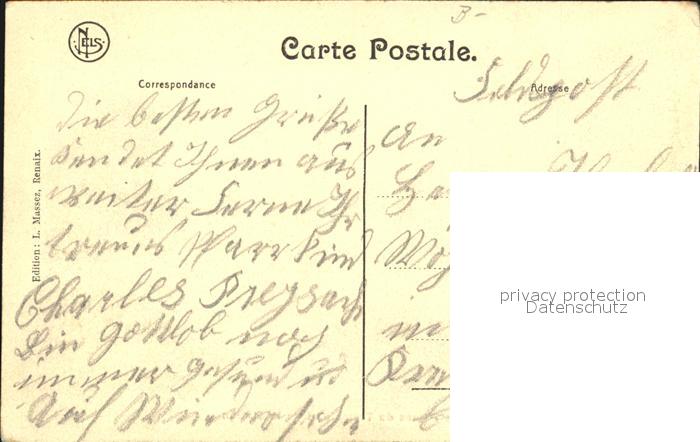 B-
NELS
Carte Postale.
Correspondance
Adresse
Feldpost
Die besten Grüße
sendet Ihnen aus
weiter Ferne Ihr
treues Pfarrkind
Charles
Bin gottlob noch
immer gesund u
Auf Wiedersehn
An
in
Edition: L. Massez, Renaix.
privacy protection
Datenschutz